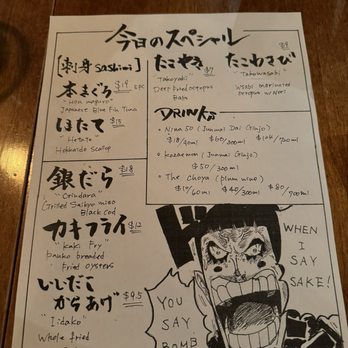 今日のスペシャル
[刺身 sashimi]
本まぐろ $19 5pc
"Hon maguro"
Japanese Blue Fin Tuna
ほたて $15
"Hotate"
Hokkaido Scallop
たこやき $7
"Takoyaki"
Deep fried octopus
Ball
たこわさび $9
"Takowasabi"
Wsabi marinated
octopus w/Nori
DRINKS
・Nian 50 (Junmai Dai Ginjo)
$18/60ml $60/300ml $124/720ml
(Junmai Ginjo)
$50/300ml
・The Choya (plum wine)
$17/60ml $40/300ml $80/700ml
銀だら $18
"Gindara"
Grilled Saikyo miso
Black cod
カキフライ $12
"Kaki Fry"
panko breaded
Fried oysters
いいだこ
からあげ $9.5
"Iidako"
Whole fried
WHEN
I
SAY
SAKE!
YOU
SAY
BOMB